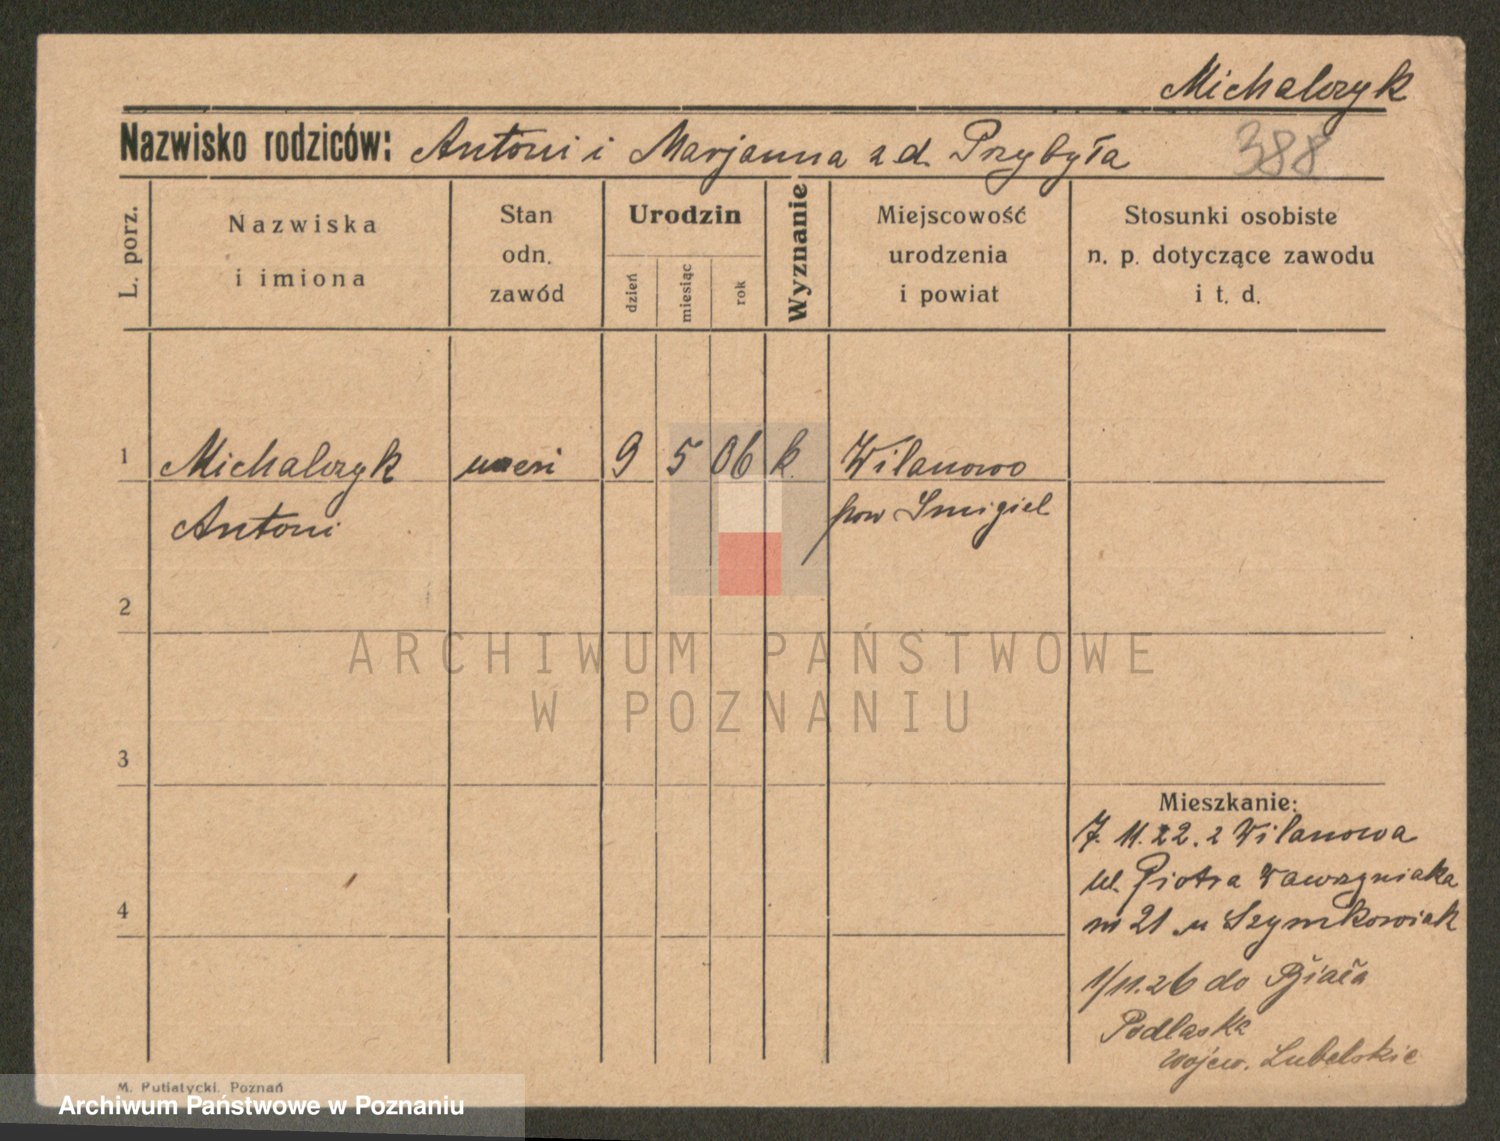 Michalczyk
Nazwisko rodziców: Antoni i Marjanna z d. Przybyła
388
L. porz.
Nazwiska
i imiona
Stan
odn.
zawód
Urodzin
dzień
miesiąc
rok
Wyznanie
Miejscowość
urodzenia
i powiat
Stosunki osobiste
n. p. dotyczące zawodu
i t. d.
1 Michalczyk 9 5 06 k. Wilanowo
Antoni pow Smigiel
2
ARCHIWUM PAŃSTWOWE
W POZNANIU
3
Mieszkanie:
7. 11. 22. z Wilanowa
ul. Piotra Wawrzyniaka
nr 21 u Szymkowiak
4
1/11.26 do Biała
Podlaska
wojew. Lubelskie
M. Putiatycki, Poznań
Archiwum Państwowe w Poznaniu